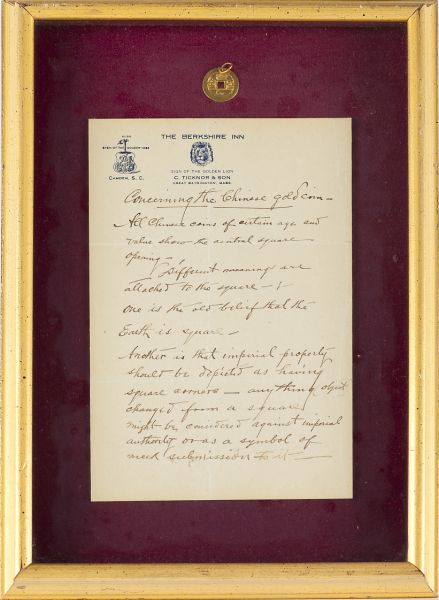 THE BERKSHIRE INN
SIGN OF THE GOLDEN LION
C. TICKNOR & SON
GREAT BARRINGTON, MASS.
CAMDEN, S. C.
Concerning the Chinese gold coin —
All Chinese coins of certain age and
value show the central square
opening —
Different meanings are
attached to the square —
one is the old belief that the
Earth is square —
Another is that imperial property
should be depicted as having
square corners — anything object
changed from a square
might be considered against imperial
authority or as a symbol of
meek submission to it —